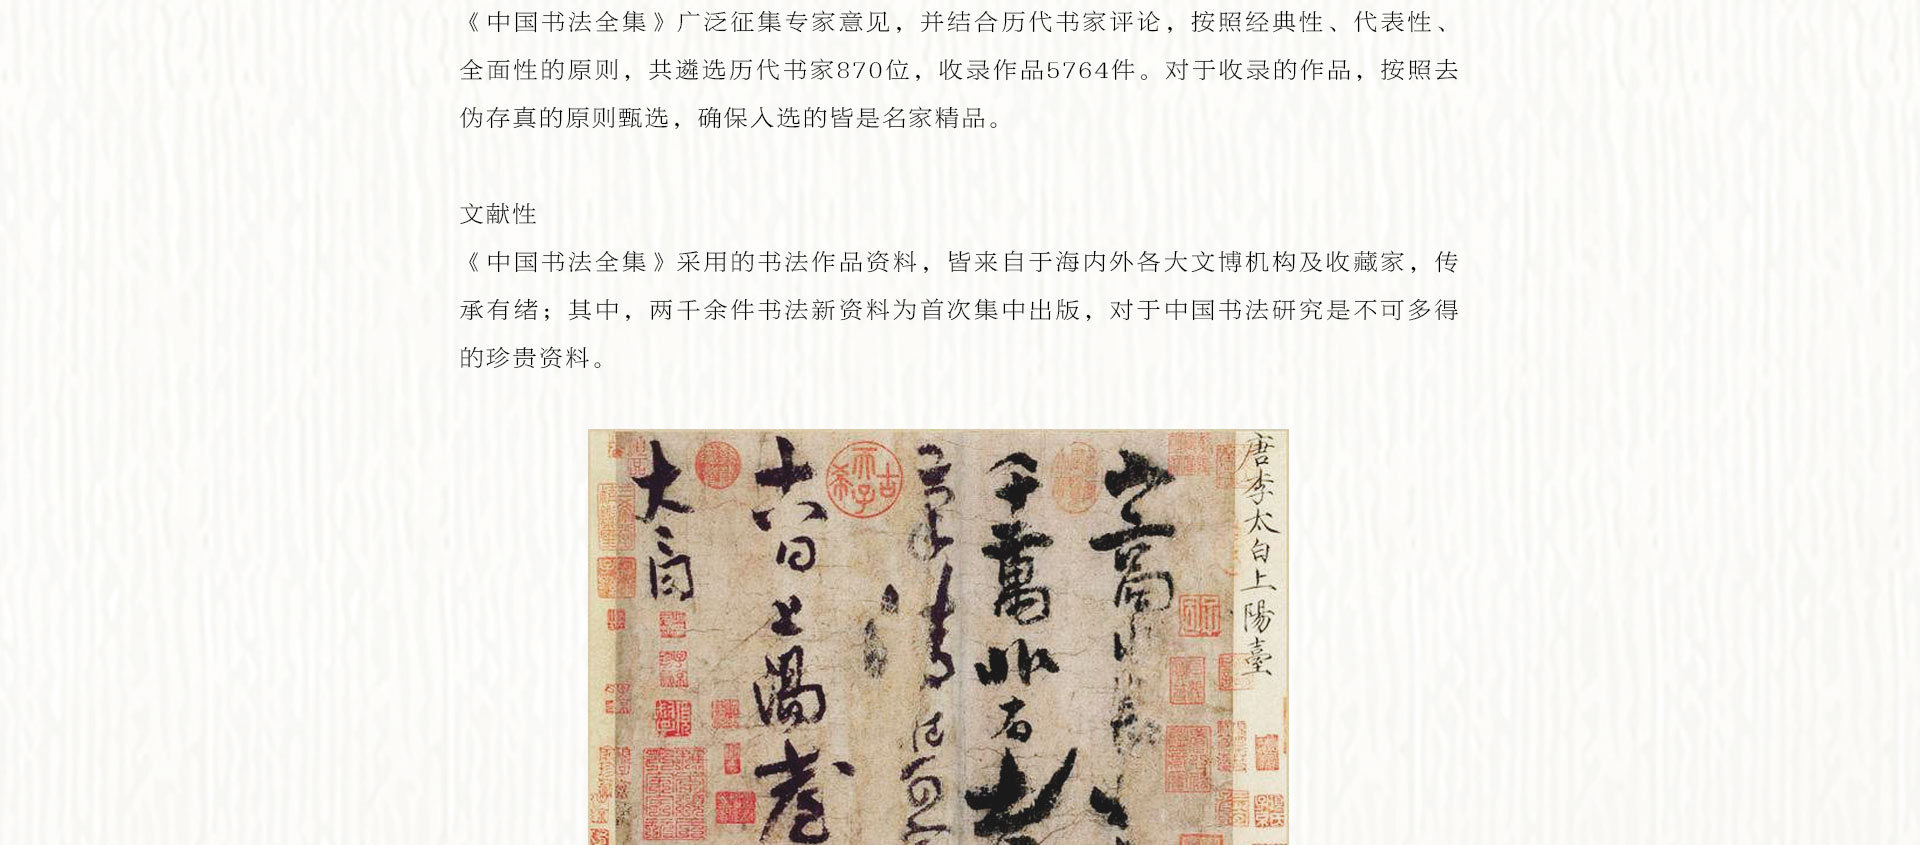 《中国书法全集》广泛征集专家意见，并结合历代书家评论，按照经典性、代表性、
全面性的原则，共遴选历代书家870位，收录作品5764件。对于收录的作品，按照去
伪存真的原则甄选，确保入选的皆是名家精品。
文献性
《中国书法全集》采用的书法作品资料，皆来自于海内外各大文博机构及收藏家，传
承有绪；其中，两千余件书法新资料为首次集中出版，对于中国书法研究是不可多得
的珍贵资料。
唐李太白上陽臺
山高水長
千萬非有老
清
十八日上陽臺